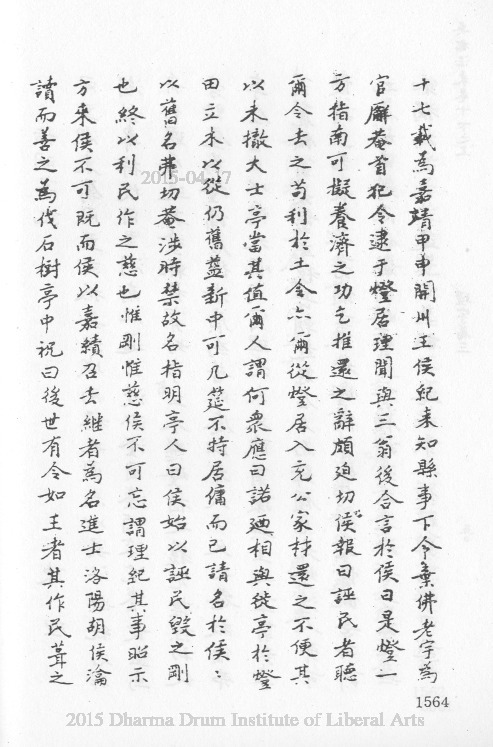 十七載為嘉靖甲申開州王侯紀來知縣事下令棄佛老宇為
官廨菴首犯令逮于燈居理聞與三翁後合言於侯曰是燈一
方指南可擬養濟之功乞推還之辭頗迫切侯報曰誣民者聽
爾令去之苟利於土令亦爾從燈居入充公家材還之不便其
以未撤大士亭當其值爾人謂何眾應曰諾廼相與徙亭於燈
田立木以從仍舊葢新中可几筵不特居傭而已請名於侯:
以舊名井切菴涉時禁故名指明亭人曰侯始以誣民毀之剛
也終以利民作之慈也惟剛惟慈侯不可忘謂理紀其事昭示
方來侯不可既而侯以嘉績召去繼者為名進士洛陽胡侯瀹
讀而善之為伐石樹亭中祝曰後世有令如王者其作民葺之
1564
2015-04-17
2015 Dharma Drum Institute of Liberal Arts